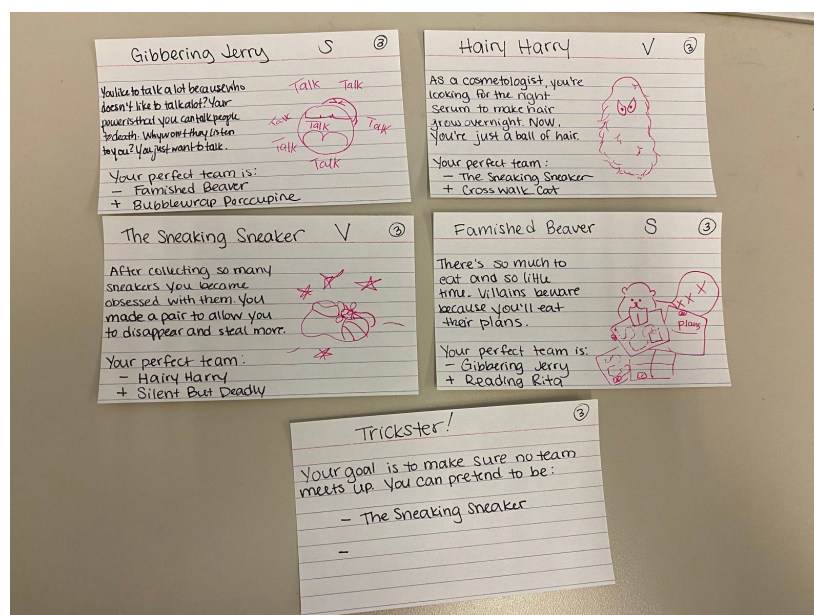 Gibbering Jerry S 3
You like to talk a lot because who
doesn't like to talk a lot? Your
power is that you can talk people
to death. Why won't they listen
to you? You just want to talk.
Talk Talk
Talk Talk Talk
Talk
Talk
Your perfect team is:
- Famished Beaver
+ Bubblewrap Porccupine
Hairy Harry V 3
As a cosmetologist, you're
looking for the right
serum to make hair
grow overnight. Now,
You're just a ball of hair.
Your perfect team:
- The Sneaking Sneaker
+ Crosswalk Cat
The Sneaking Sneaker V 3
After collecting so many
sneakers you became
obsessed with them. You
made a pair to allow you
to disappear and steal more.
Your perfect team:
- Hairy Harry
+ Silent But Deadly
Famished Beaver S 3
There's so much to
eat and so little
time. Villains beware
because you'll eat
their plans.
Plans
Your perfect team is:
- Gibbering Jerry
+ Reading Rita
Trickster! 3
Your goal is to make sure no team
meets up. You can pretend to be:
- The Sneaking Sneaker
-